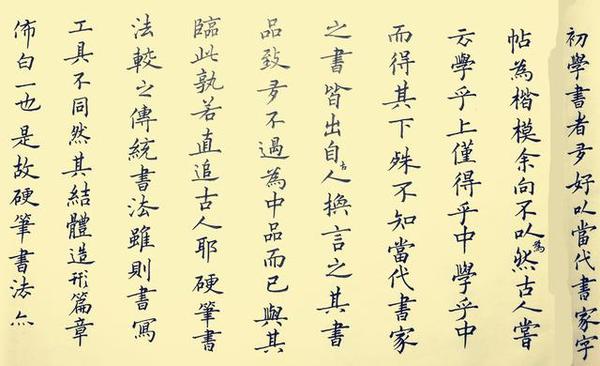 初學書者多好以當代書家字
帖為楷模余向不以為然古人嘗
云學乎上僅得乎中學乎中
而得其下殊不知當代書家
之書皆出自古人換言之其書
品致多不過為中品而已與其
臨此孰若直追古人耶硬筆書
法較之傳統書法雖則書寫
工具不同然其結體造形篇章
佈白一也是故硬筆書法亦